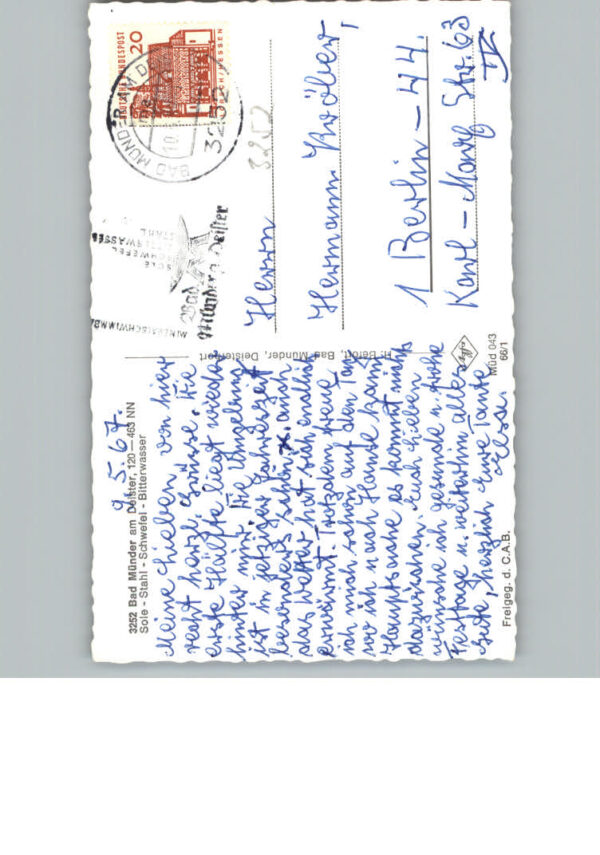 3252 Bad Münder am Deister, 120—463 NN
Sole - Stahl - Schwefel - Bitterwasser
9.5.67.
Meine Lieben von hier
recht herzl. Grüsse. Die
erste Hälfte liegt wieder
hinter mir. Die Umgebung
ist in jetziger Jahreszeit
besonders schön. auch
das Wetter hat sich endlich
erwärmt. Trotzdem freue
ich mich schon auf den Tag
wo ich nach Hause kann
Hauptsache es kommt nichts
dazwischen. Euch Lieben
wünsche ich gesunde u. frohe
Festtage u. weiterhin alles
Gute, herzlich Eure Tante
Elsa.
Freigeg. d. C.A.B.
H. Berott, Bad Münder, Deisterport
Agfa
Müd 043
66/1
DEUTSCHE BUNDESPOST
20
LORSCH/HESSEN
BAD MÜNDER AM DEISTER
3252
MINERALSCHWIMMBAD
SOLE
SCHWEFEL
BITTERWASSER
STAHL
Bad
Münder a. Deister
3252
Herrn
Hermann Kröber,
1 Berlin – 44.
Karl – Marx Str. 63
IV